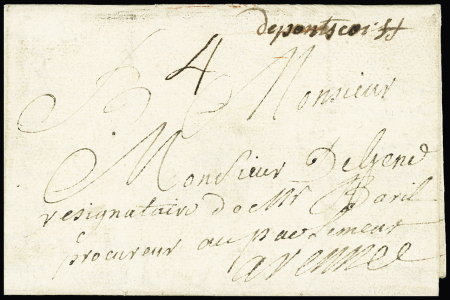 depontscorff
4
Monsieur
Monsieur
resignataire de Mr Baril
procureur au parlement
a rennes